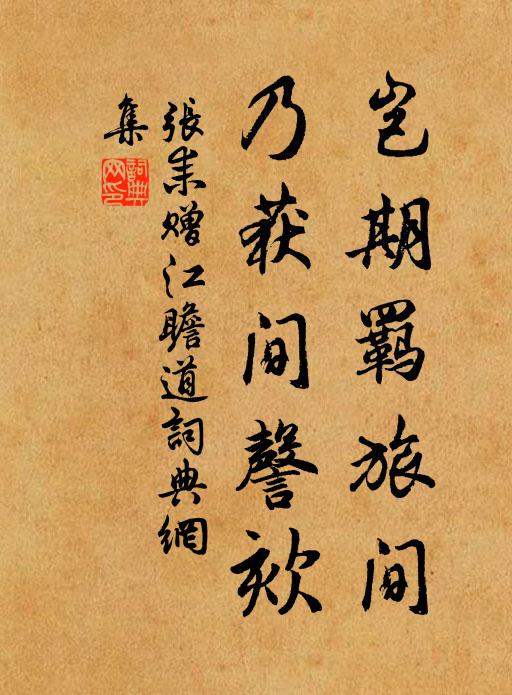 岂期羁旅间
乃获间謦欬
张耒赠江瞻道詞典網
集
詞典
网印